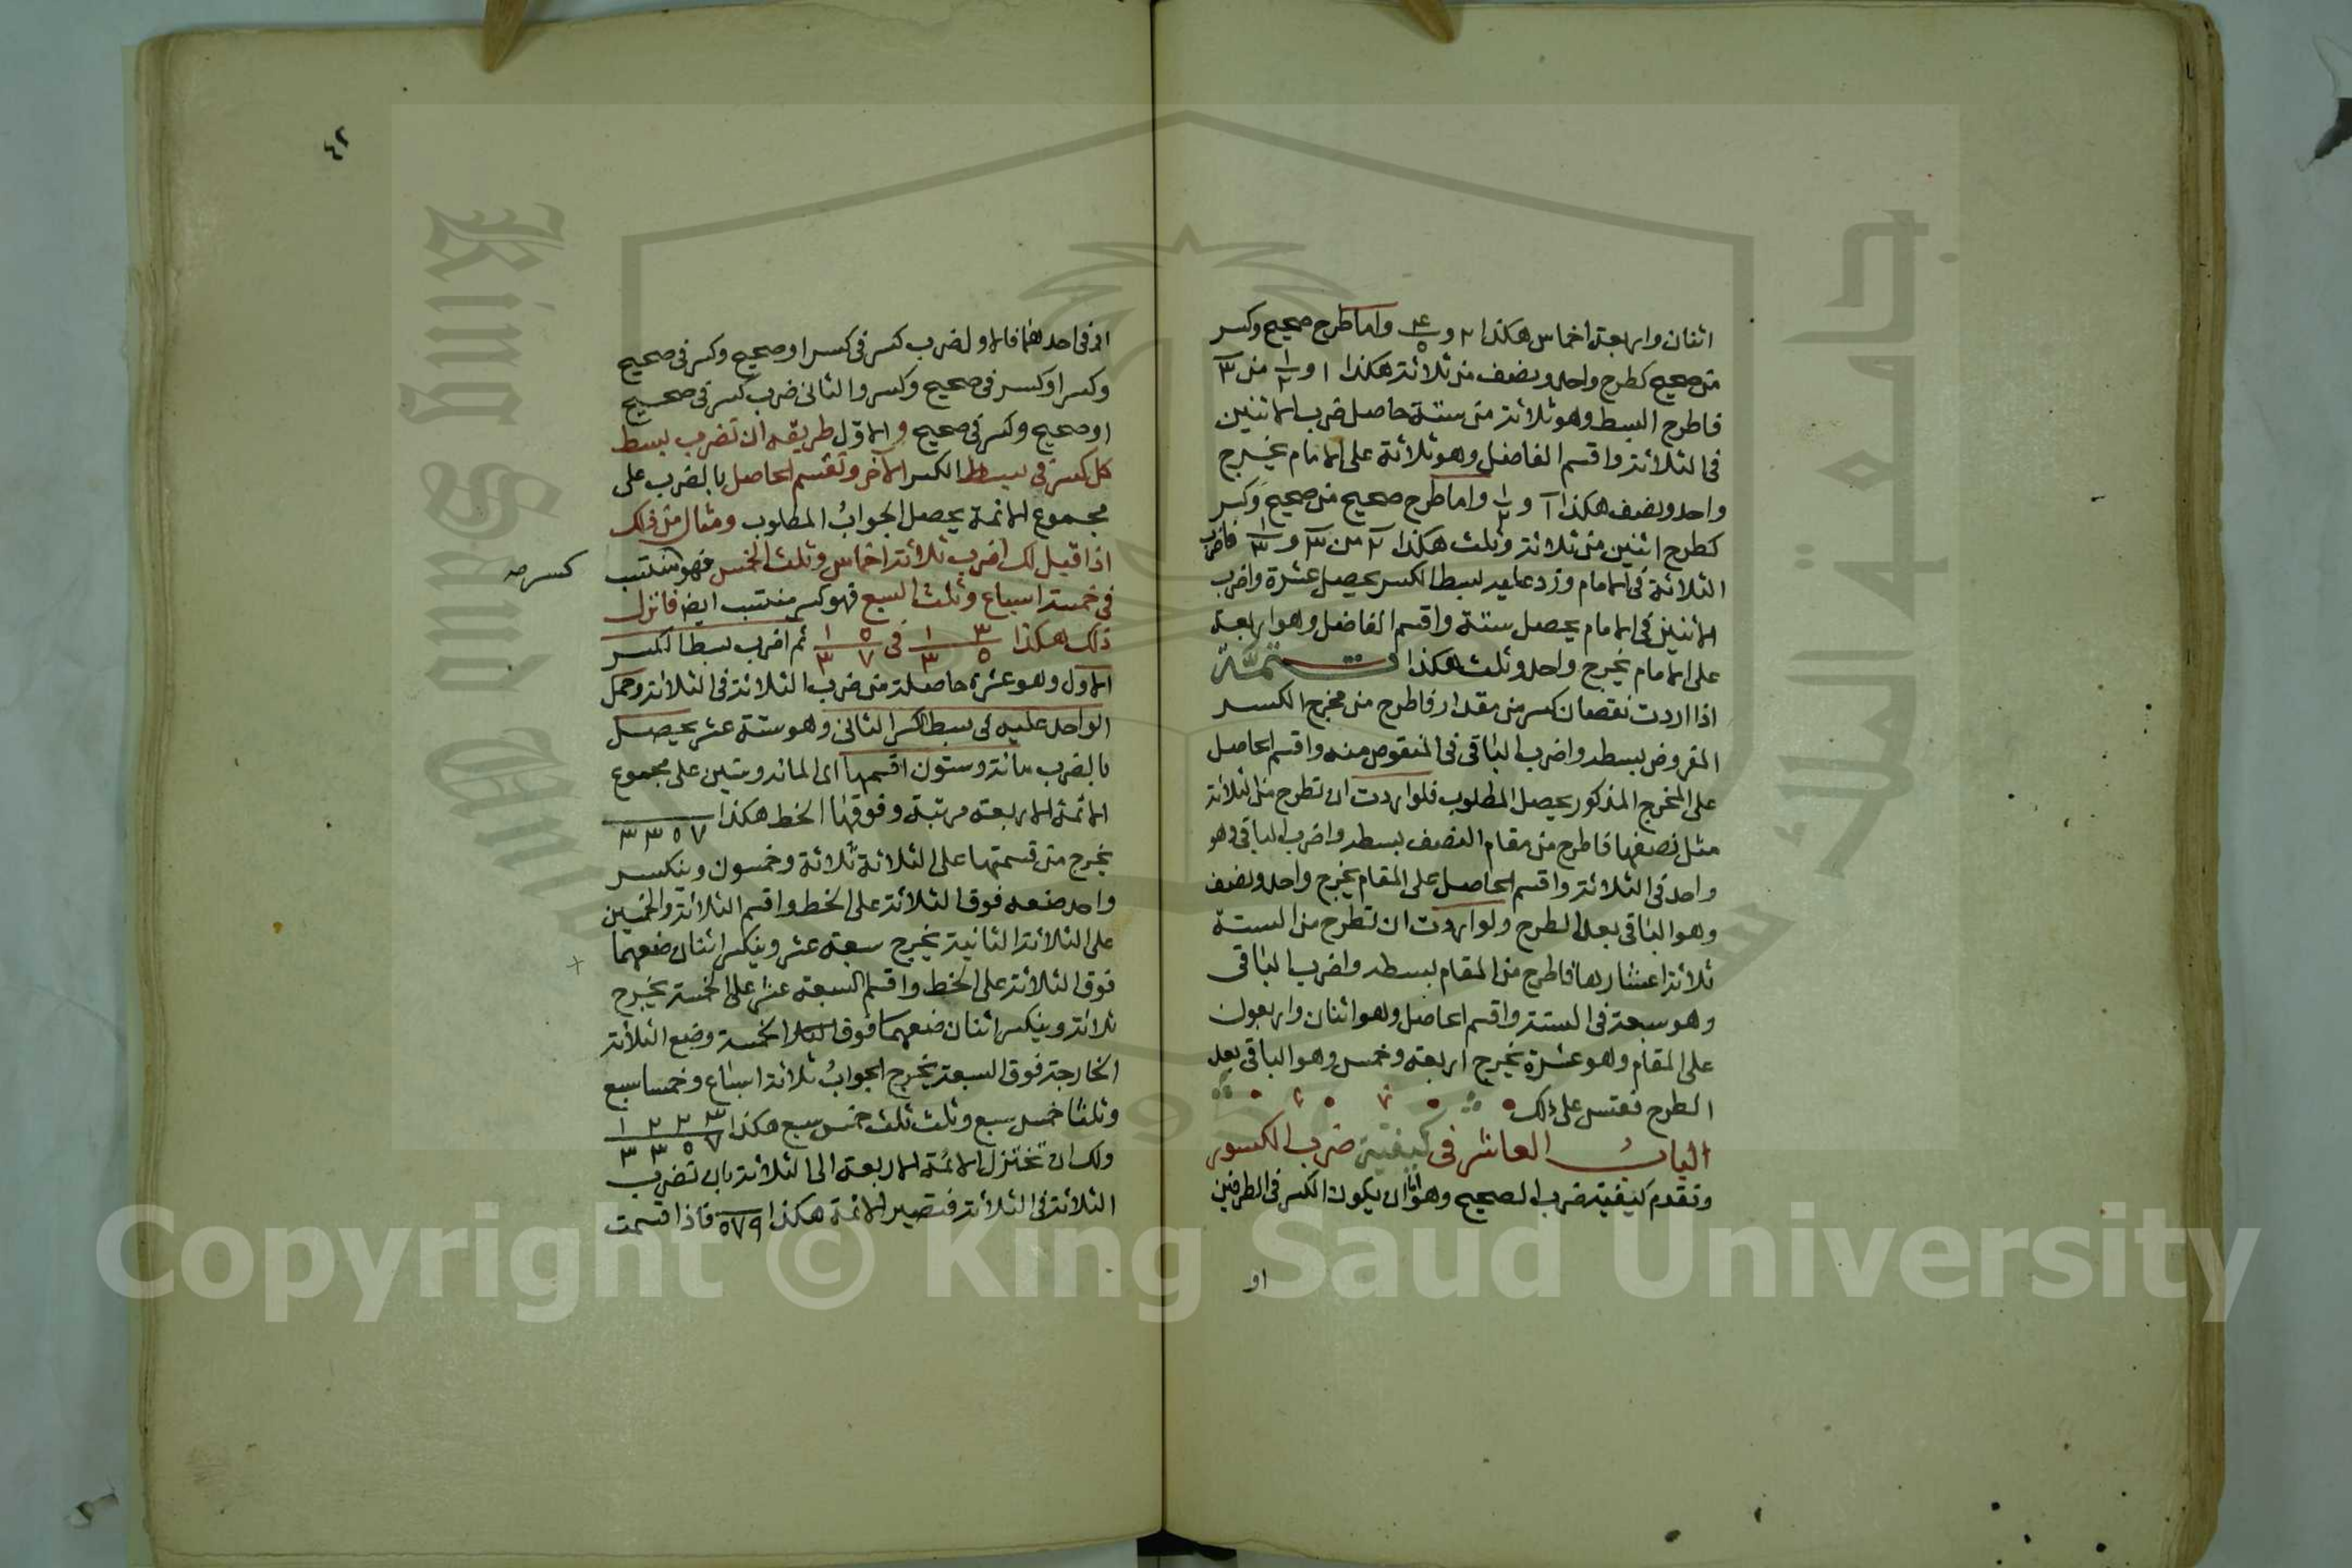 اثنان واربعة اخماس هكذا ٢ و ٤/٥ واما طرح صحيح وكسر
من صحيح كطرح واحد ونصف من ثلاثة هكذا ١ و ١/٢ من ٣
فاطرح البسط وهو ثلاثة من ستة حاصل ضرب الاثنين
فى الثلاثة واقسم الفاضل وهو ثلاثة على الامام يخرج
واحد ونصف هكذا ١ و ١/٢ واما طرح صحيح من صحيح وكسر
كطرح اثنين من ثلاثة وثلث هكذا ٢ من ٣ و ١/٣ فاضرب
الثلاثة فى الامام وزد عليه بسط الكسر يحصل عشرة واضرب
الاثنين فى الامام يحصل ستة واقسم الفاضل وهو اربعة
على الامام يخرج واحد وثلث هكذا تتمة
اذا اردت نقصان كسر من مقدار فاطرح من مخرج الكسر
المفروض بسطه واضرب الباقى فى المنقوص منه واقسم الحاصل
على المخرج المذكور يحصل المطلوب فلو اردت ان تطرح من الثلاثة
مثل نصفها فاطرح من مقام النصف بسطه واضرب الباقى وهو
واحد فى الثلاثة واقسم الحاصل على المقام يخرج واحد ونصف
وهو الباقى بعد الطرح ولو اردت ان تطرح من الستة
ثلاثة اعشارها فاطرح من المقام بسطه واضرب الباقى
وهو سبعة فى الستة واقسم الحاصل وهو اثنان واربعون
على المقام وهو عشرة يخرج اربعة وخمس وهو الباقى بعد
الطرح فقس على ذلك
الباب العاشر فى كيفية ضرب الكسور
وتقدم كيفية ضرب الصحيح وهو اما ان يكون الكسر فى الطرفين
او
٤٢
او فى احدهما فالاول ضرب كسر فى كسر او صحيح وكسر فى صحيح
وكسر او كسر فى صحيح وكسر والثانى ضرب كسر فى صحيح
او صحيح وكسر فى صحيح والاول طريقه ان تضرب بسط
كل كسر فى بسط الكسر الآخر وتقسم الحاصل بالضرب على
مجموع الائمة يحصل الجواب المطلوب ومثال من ذلك
اذا قيل لك اضرب ثلاثة اخماس وثلث الخمس فهو منتسب
كسر صح
فى خمسة اسباع وثلث السبع فهو كسر منتسب ايضا فانزل
ذلك هكذا ٣/٥ ١/٣ فى ٥/٧ ١/٣ ثم اضرب بسط الكسر
الاول وهو عشرة حاصلة من ضرب الثلاثة فى الثلاثة وحمل
الواحد عليه فى بسط الكسر الثانى وهو ستة عشر يحصل
بالضرب مائة وستون اقسمها اى المائة وستين على مجموع
الائمة الاربعة مرتبة وفوقها الخط هكذا ٣ ٣ ٥ ٧
يخرج من قسمتها على الثلاثة ثلاثة وخمسون وينكسر
واحد ضعه فوق الثلاثة على الخط واقسم الثلاثة والخمسين
على الثلاثة الثانية يخرج سبعة عشر وينكسر اثنان ضعهما
فوق الثلاثة على الخط واقسم السبعة عشر على الخمسة يخرج
ثلاثة وينكسر اثنان ضعهما فوق الخمسة وضع الثلاثة
الخارجة فوق السبعة يخرج الجواب ثلاثة اسباع وخمسا سبع
وثلثا خمس سبع وثلث ثلث خمس سبع هكذا ١ ٢ ٢ ٣ / ٣ ٣ ٥ ٧
ولك ان تختزل الائمة الاربعة الى الثلاثة بان تضرب
الثلاثة فى الثلاثة فتصير الائمة هكذا ٥٧٩ فاذا قسمت
Copyright © King Saud University